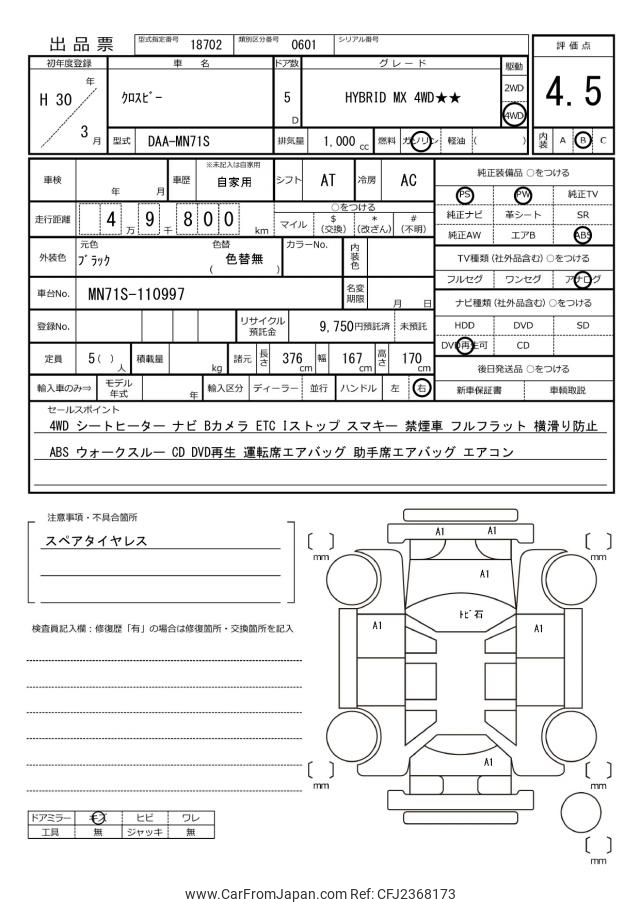 出品票 型式指定番号 18702 類別区分番号 0601 シリアル番号 評価点
初年度登録 車名 ドア数 グレード 駆動
H 30 年 3 月 クロスビー 5 D HYBRID MX 4WD★★ 2WD 4WD 4.5
型式 DAA-MN71S 排気量 1,000 cc 燃料 ガソリン 軽油 ( ) 内装 A B C
車検 年 月 車歴 ※未記入は自家用 自家用 シフト AT 冷房 AC
走行距離 4 万 9 千 8 0 0 km
○をつける
マイル $ (交換) * (改ざん) # (不明)
外装色 元色 ブラック 色替 ( 色替無 ) カラーNo. 内装色
車台No. MN71S-110997 名変期限 月 日
登録No. リサイクル預託金 9,750円預託済 未預託
定員 5 ( ) 人 積載量 kg 諸元 長さ 376 cm 幅 167 cm 高さ 170 cm
輸入車のみ⇒ モデル年式 年 輸入区分 ディーラー 並行 ハンドル 左 右
純正装備品 ○をつける
PS PW 純正TV
純正ナビ 革シート SR
純正AW エアB ABS
TV種類 (社外品含む) ○をつける
フルセグ ワンセグ アナログ
ナビ種類 (社外品含む) ○をつける
HDD DVD SD
DVD再生可 CD
後日発送品 ○をつける
新車保証書 車輌取説
セールスポイント
4WD シートヒーター ナビ Bカメラ ETC Iストップ スマキー 禁煙車 フルフラット 横滑り防止
ABS ウォークスルー CD DVD再生 運転席エアバッグ 助手席エアバッグ エアコン
注意事項・不具合箇所
スペアタイヤレス
検査員記入欄：修復歴「有」の場合は修復箇所・交換箇所を記入
A1 A1
mm mm
A1
トビ石
A1 A1
A1
mm mm
mm
ドアミラー キズ ヒビ ワレ
工具 無 ジャッキ 無
www.CarFromJapan.com Ref: CFJ2368173